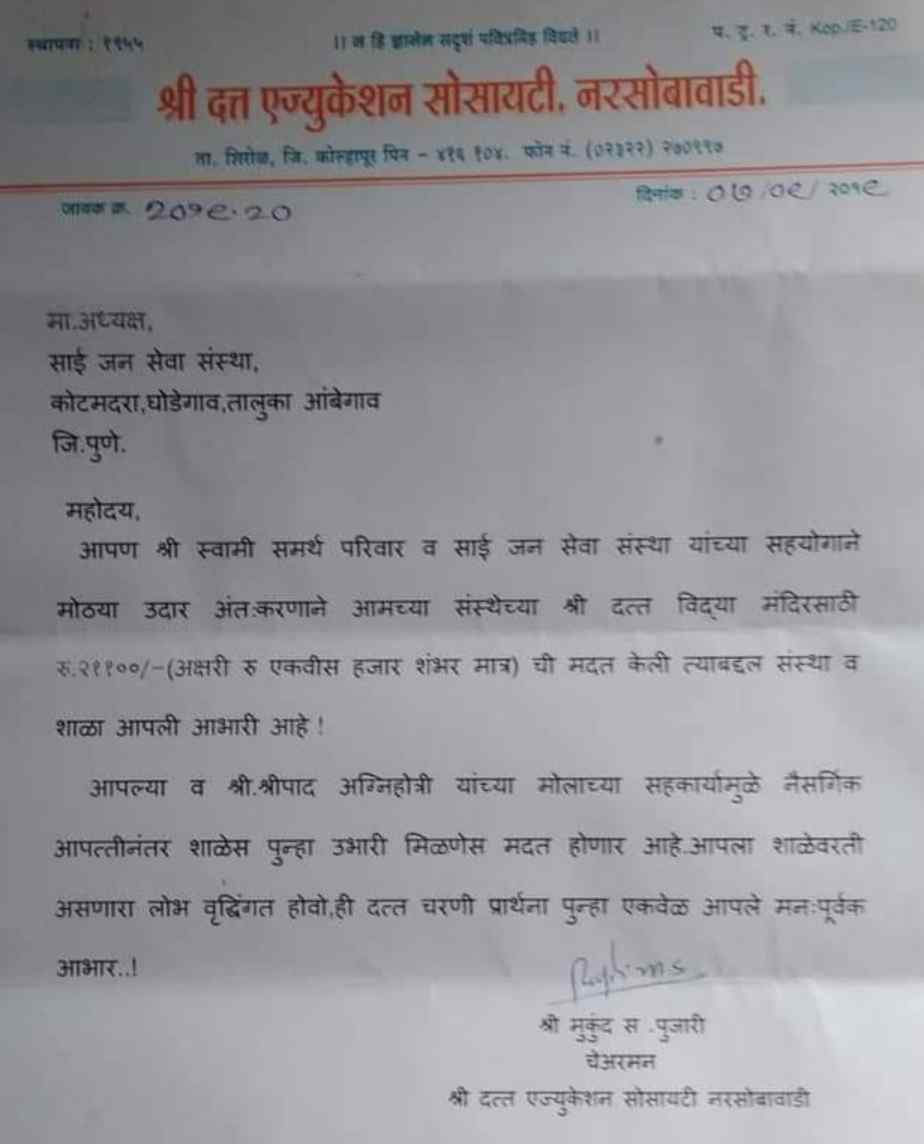 स्थापना : १९५५
।। न हि ज्ञानेन सदृशं पवित्रमिह विद्यते ।।
प. ट्र. र. नं. Kop./E-120
श्री दत्त एज्युकेशन सोसायटी, नरसोबावाडी.
ता. शिरोळ, जि. कोल्हापूर पिन - ४१६ १०४. फोन नं. (०२३२२) २७०११७
जावक क्र. २०१९.२०
दिनांक : ०७/०९/२०१९
मा.अध्यक्ष,
साई जन सेवा संस्था,
कोटमदरा,घोडेगाव,तालुका आंबेगाव
जि.पुणे.
महोदय,
आपण श्री स्वामी समर्थ परिवार व साई जन सेवा संस्था यांच्या सहयोगाने
मोठया उदार अंतःकरणाने आमच्या संस्थेच्या श्री दत्त विद्या मंदिरसाठी
रु.२११००/-(अक्षरी रु एकवीस हजार शंभर मात्र) ची मदत केली त्याबद्दल संस्था व
शाळा आपली आभारी आहे !
आपल्या व श्री.श्रीपाद अग्निहोत्री यांच्या मोलाच्या सहकार्यामुळे नैसर्गिक
आपत्तीनंतर शाळेस पुन्हा उभारी मिळणेस मदत होणार आहे.आपला शाळेवरती
असणारा लोभ वृद्धिंगत होवो,ही दत्त चरणी प्रार्थना पुन्हा एकवेळ आपले मनःपूर्वक
आभार..!
श्री मुकुंद स .पुजारी
चेअरमन
श्री दत्त एज्युकेशन सोसायटी नरसोबावाडी